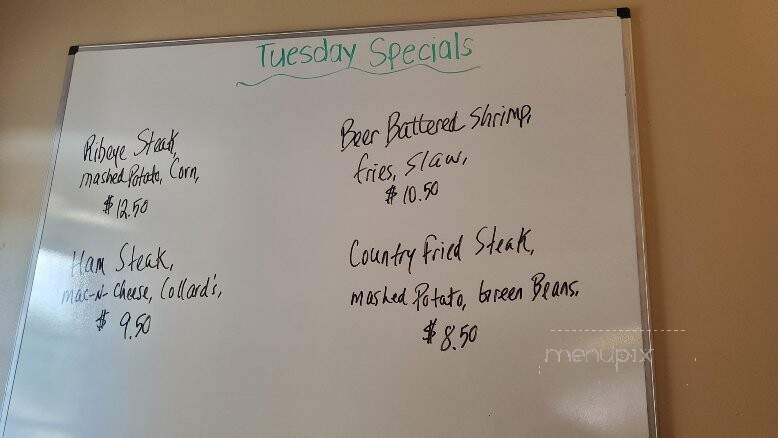 Tuesday Specials
Ribeye Steak,
mashed Potato, Corn,
$12.50
Beer Battered Shrimp,
fries, Slaw,
$10.50
Ham Steak,
mac-N-Cheese, Collard's,
$9.50
Country fried Steak,
mashed Potato, Green Beans,
$8.50
menupix